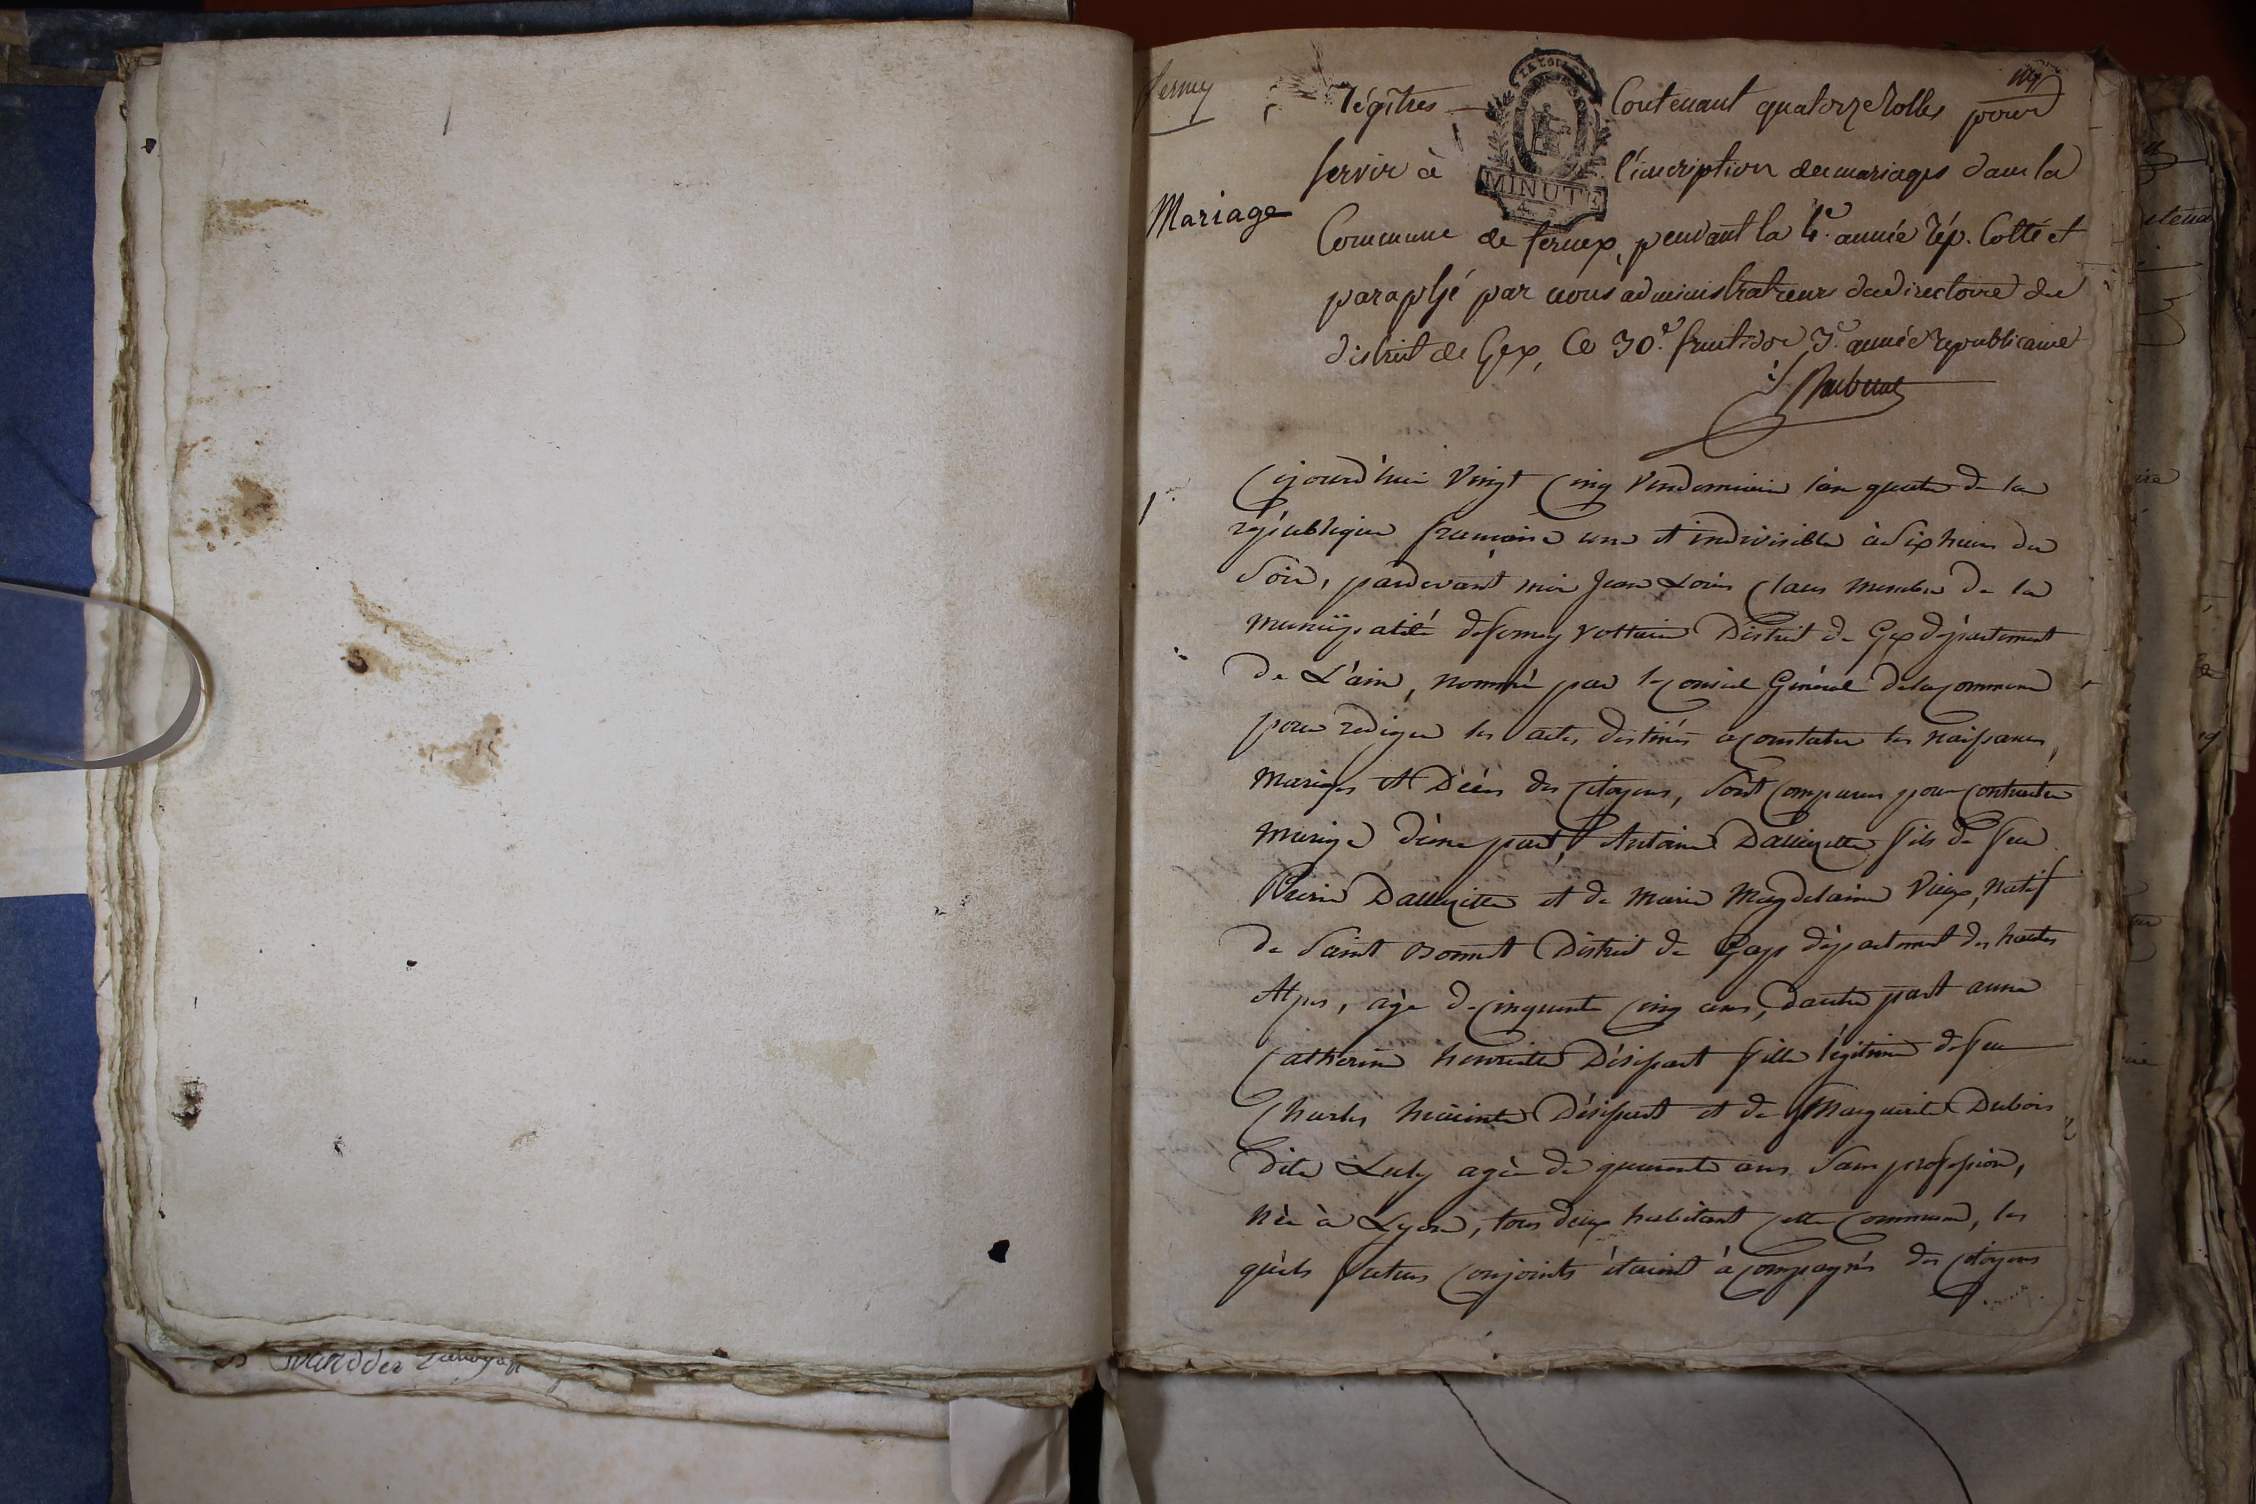 ferney
Mariage
Régitres Contenant quatorze rolles pour
servir à l'incription des mariages dans la
Commune de fernex, pendant la 4e. année rép. Cotté et
paraphé par nous administrateurs du directoire du
district de Gex, Ce 30e. fructidor 3e. année republicaine
MINUTE
1er.
Cejourd'hui Vingt Cinq Vendemiaire l'an quatre de la
république francaise une et indivisible à Six heures du
Soir, pardevant moi Jean Louis Claus membre de la
municipalité de ferney Voltaire District de Gex département
de L'ain, nommé par le Conseil Général de la Commune
pour rediger les actes destinés a Constater les naissances,
Mariages et Décès des Citoyens, Sont Comparus pour Contracter
Mariage d'une part, Antoine Dallizette fils de feu
Pierre Dallizette et de Marie Magdelaine Vieux, natif
de Saint Bonnet District de Gap département des hautes
Alpes, agé de Cinquante Cinq ans, d'autre part anne
Catherine henriette Désispart fille légitime de feu
Charles hiacinte Désispart et de Marguerite Dubois
dite Luly agée de quarante ans Sans profession,
née à Lyon, tous deux habitant Cette Commune, les
quels futurs Conjoints étaient acompagnés des Citoyens